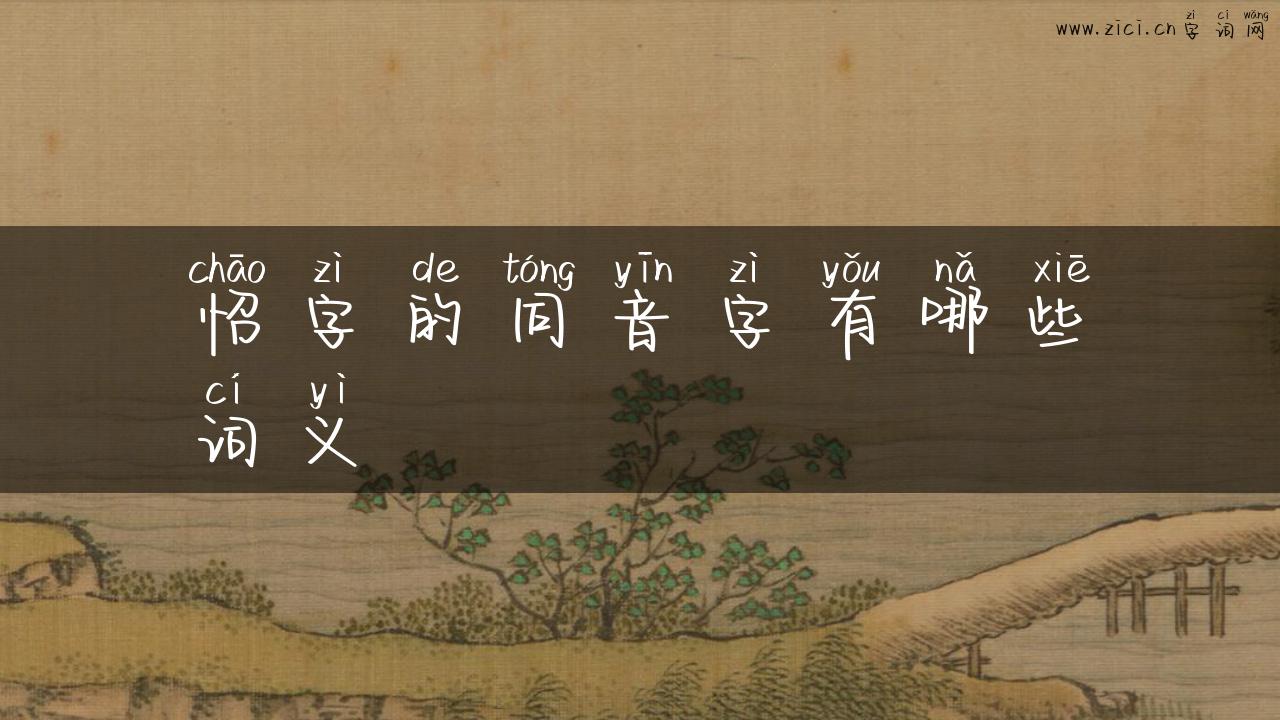 zì cí wǎng
www.zici.cn字词网
chāo zì de tóng yīn zì yǒu nǎ xiē
怊字的同音字有哪些
cí yì
词义